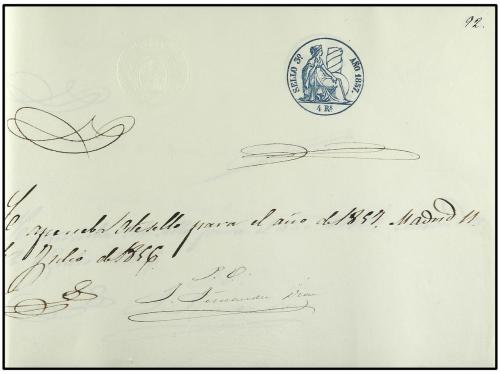 92.
SELLO 3º AÑO 1857.
4 Rs
aprueba este sello para el año de 1857. Madrid 11.
Julio de 1856.
P. O.
J. Fernandez